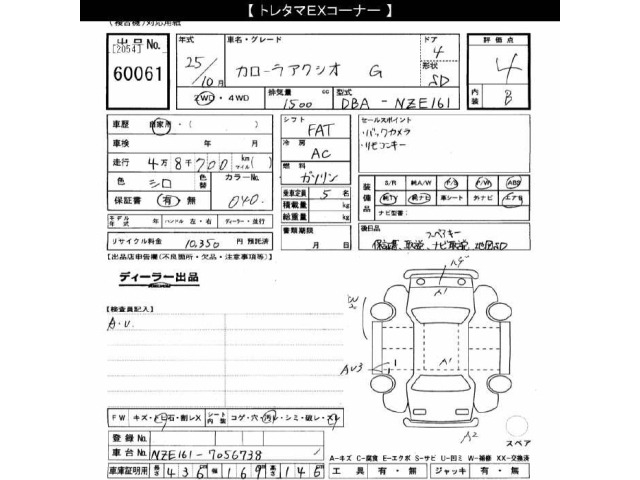 【 トレタマEXコーナー 】
(複合機)対応用紙
出品 No. [2054] 60061
年式 25/10月
車名・グレード カローラアクシオ G
ドア 4 形状 SD
評価点 4
内装 B
2WD・4WD
排気量 1500 cc
型式 DBA - NZE161
車歴 自家用・( )
シフト FAT
セールスポイント
・バックカメラ
・リモコンキー
車検 年 月
冷房 AC
走行 4万8千700 km マイル ( )
燃料 ガソリン
色 シロ 色替 カラーNo. 040
保証書 有・無
乗車定員 5 名
積載量 kg
総重量 kg
装備品 S/R 純A/W P/S P/W ABS
純TV 純ナビ 革シート 外ナビ エアB
ナビ型番:
モデル年式 年 ハンドル 左・右 ディーラー・並行
書類期限 月 日
後日品 スペアキー
保証書、取説、ナビ取説、地図SD
リサイクル料金 10,350 円 預託済
【出品店申告欄(不良箇所・欠品・注意事項等)】
ディーラー出品
【検査員記入】
A・U
W2
AU3
A1
A1
A2
FW キズ・トビ石・割レX シート内張 コゲ・穴・汚レ・シミ・破レ・スレ
登録 No.
車台 No. NZE161-7056738
スペア
A-キズ C-腐食 E-エクボ S-サビ U-凹ミ W-補修 XX-交換済
車庫証明用 長さ 436 cm 幅 169 cm 高さ 146 cm
工具 有・無 ジャッキ 有・無